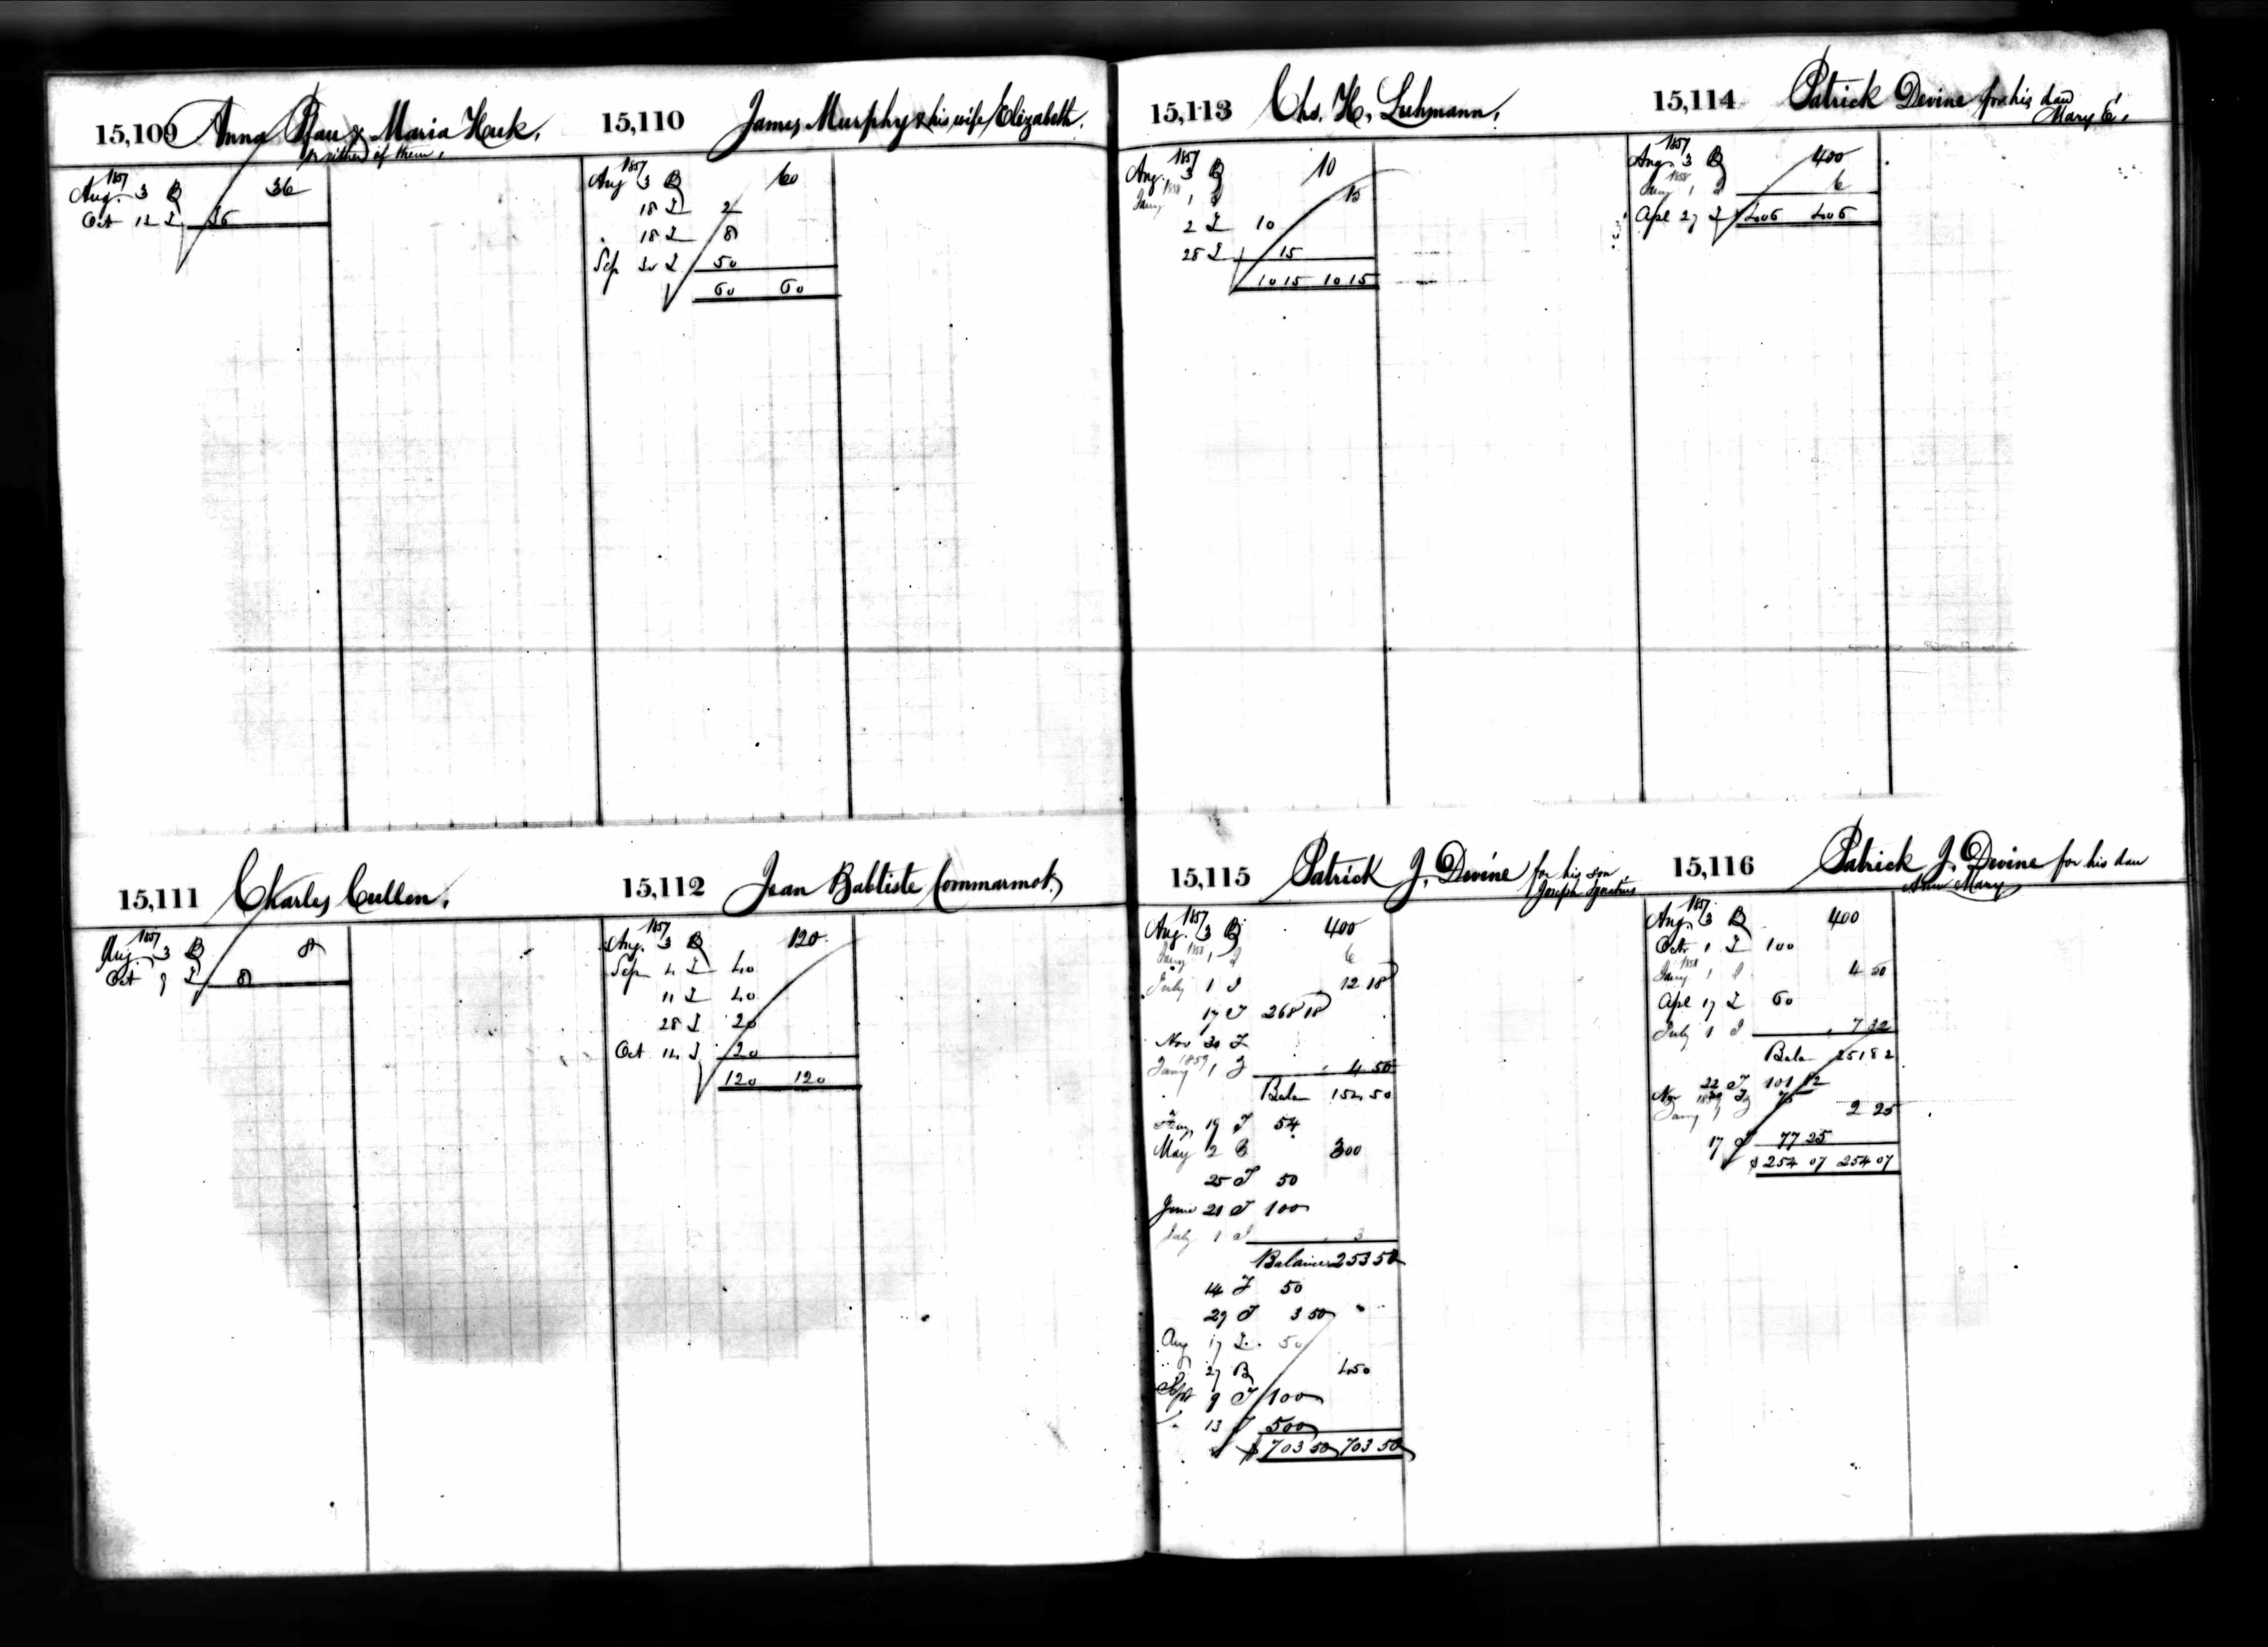 15,109 Anna Pfau & Maria Huk,
or either of them,
1857
Aug. 3 B 36
Oct 12 I 36
15,110 James Murphy & his wife Elizabeth.
1857
Aug 3 B 60
18 I 2
18 I 8
Sep 30 I 50
60 60
15,111 Charles Cullen.
1857
Aug. 3 B 8
Oct 9 I 8
15,112 Jean Babtiste Commarmot.
1857
Aug. 3 B 120
Sep 4 I 40
11 I 40
28 I 20
Oct 14 I 20
120 120
15,113 Chs. H. Luhmann,
1857
Aug. 3 B 10
1858
Jany 1 I 15
2 I 10
28 I 15
10 15 10 15
15,114 Patrick Devine for his dau
Mary E.
1857
Aug. 3 B 400
1858
Jany 1 I 6
Apl 27 I 406 406
15,115 Patrick J. Devine for his son,
Joseph Ignatius
1857
Aug. 3 B 400
1858
Jany 1 I 6
July 1 I 12 18
17 T 268 18
Nov 30 I
1859
Jany 1 I 4 50
Balan 154 50
Jany 19 T 54
May 2 B 300
25 T 50
June 21 T 100
July 1 I 3
Balance 253 50
14 T 50
29 T 3 50
Aug 17 I 50
27 B 450
Sept 9 T 100
13 T 500
$ 703 50 703 50
15,116 Patrick J. Devine for his dau
Ann Mary
1857
Aug. 3 B 400
Oct. 1 I 100
1858
Jany 1 I 4 50
Apl 17 I 60
July 1 I 7 32
Bala 251 82
22 T 101 82
Nov 30 I 75
1859
Jany 1 I 2 25
17 T 77 25
$ 254 07 254 07